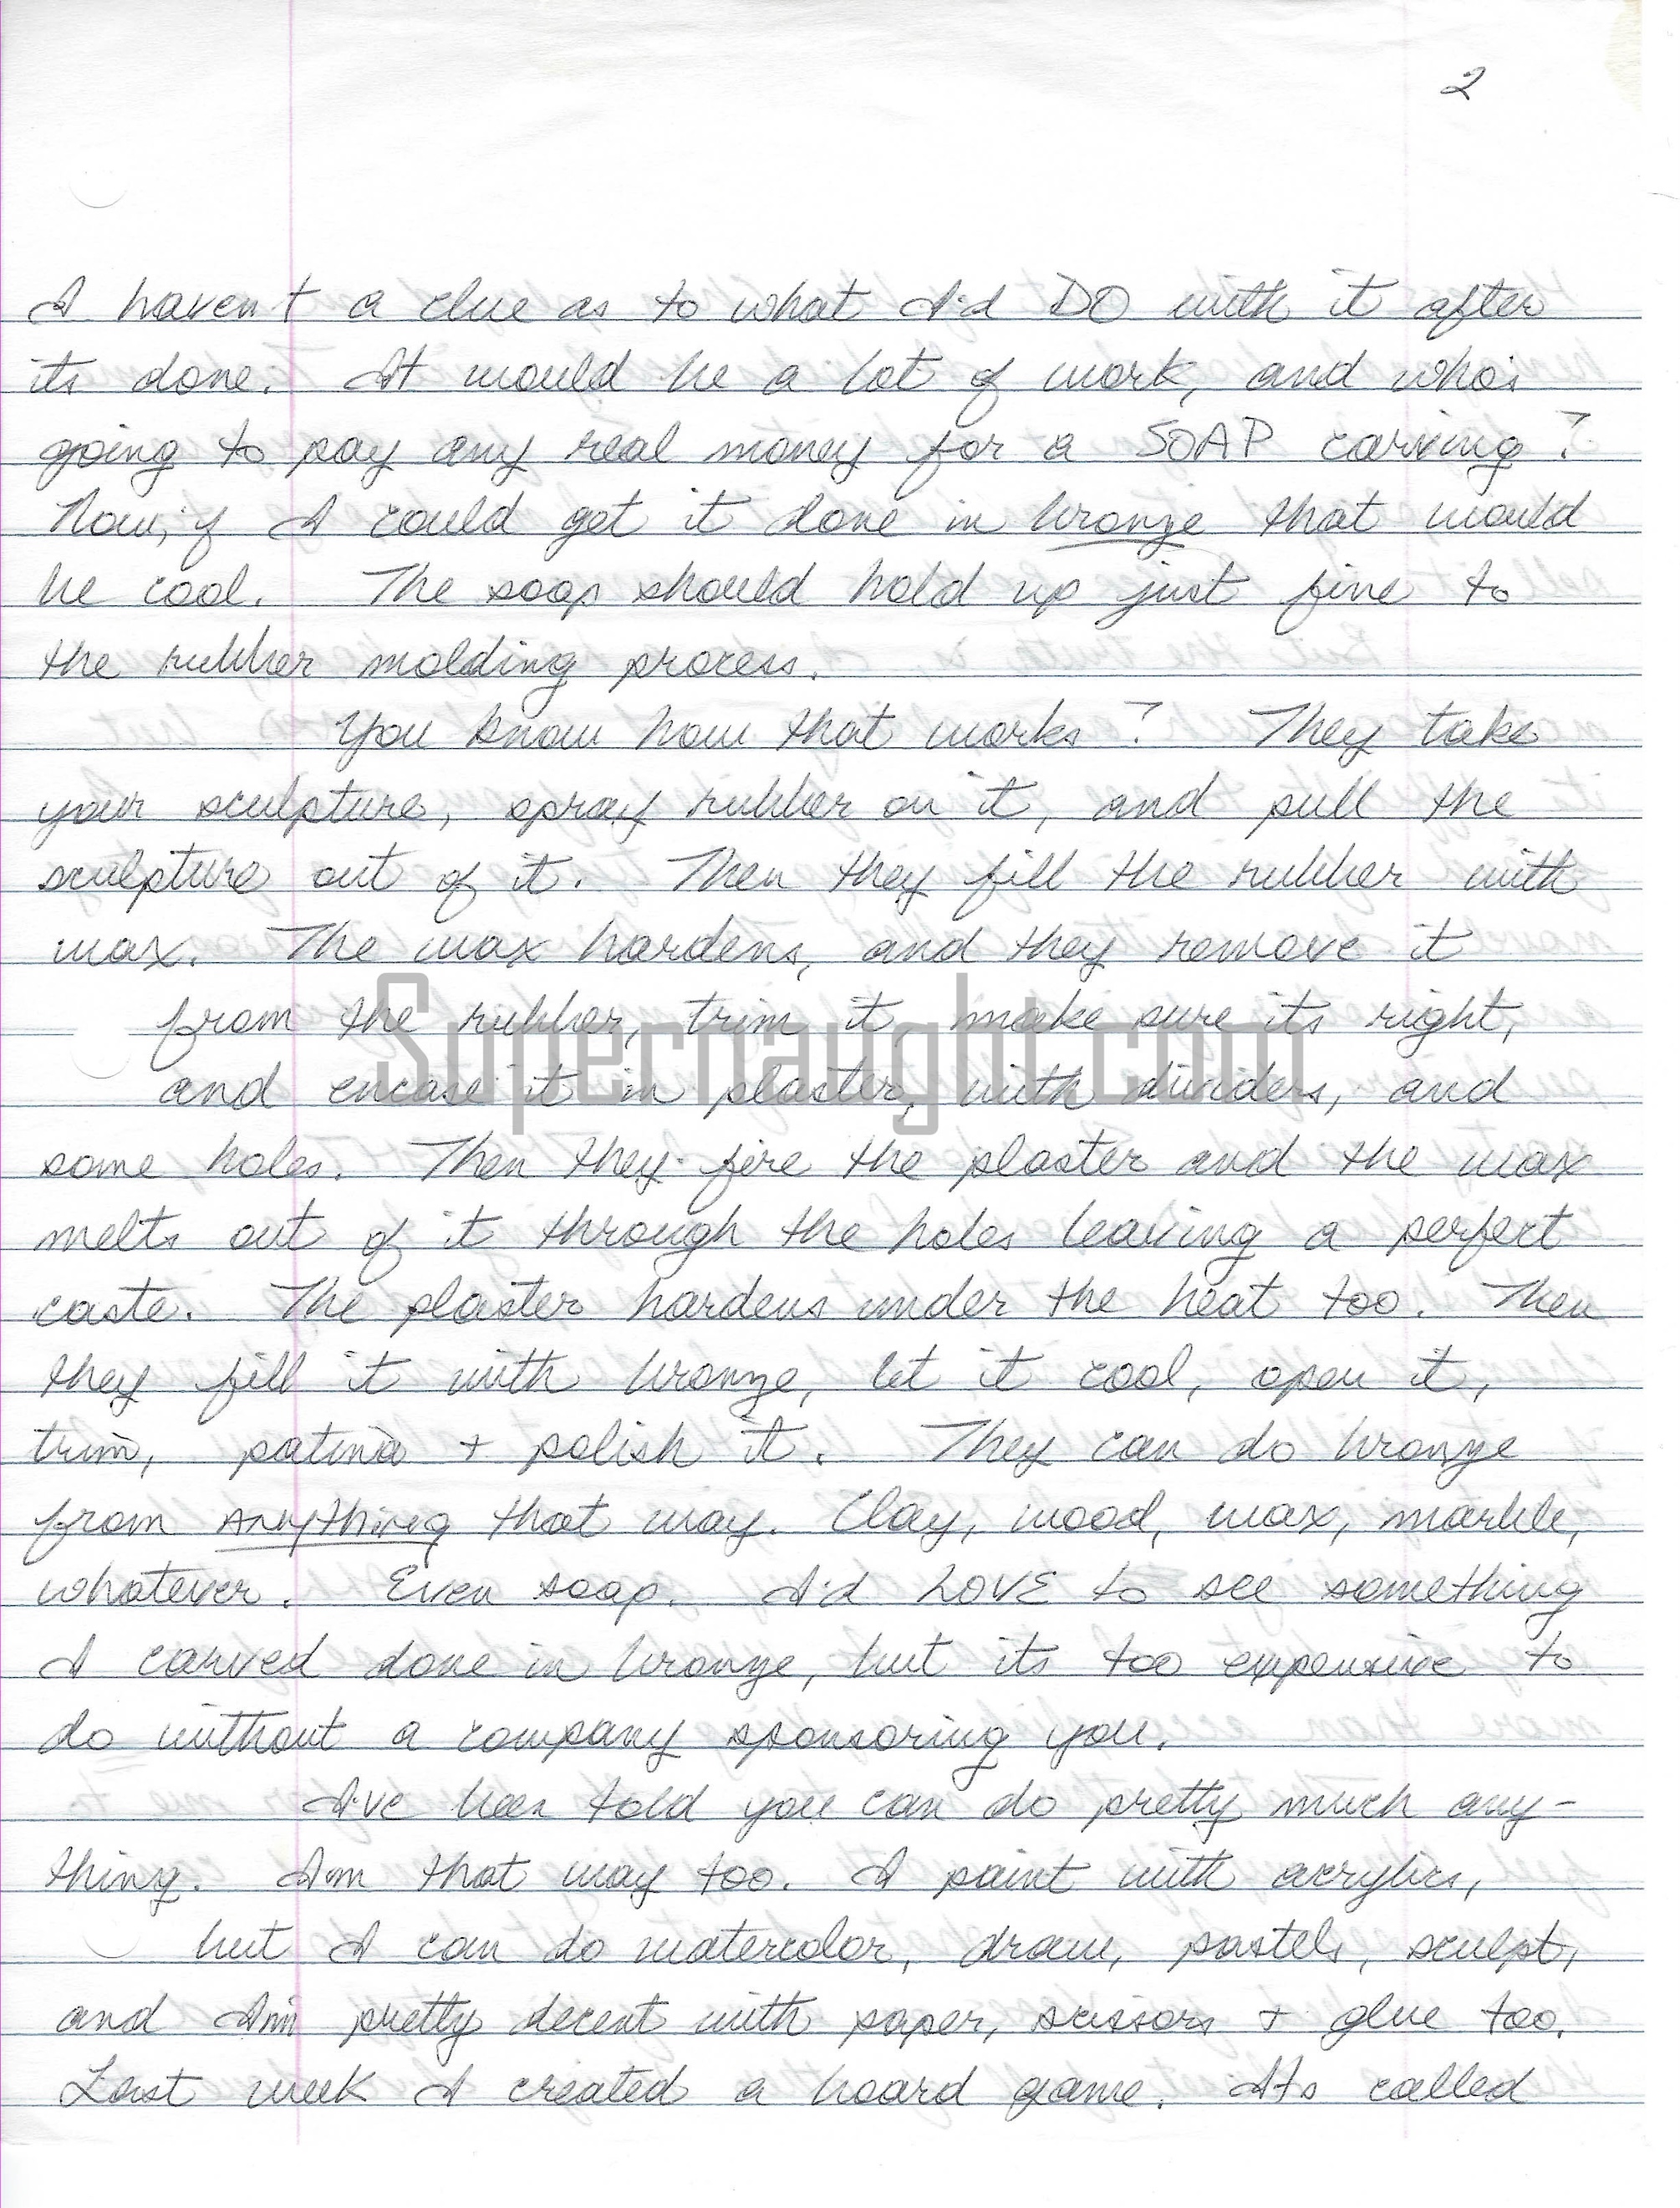 2
I haven't a clue as to what I'd DO with it after
its done. It would be a lot of work, and who's
going to pay any real money for a SOAP carving?
Now, if I could get it done in bronze that would
be cool. The soap should hold up just fine to
the rubber molding process.
You know how that works? They take
your sculpture, spray rubber on it, and pull the
sculpture out of it. Then they fill the rubber with
wax. The wax hardens, and they remove it
from the rubber, trim it, make sure its right,
Supernaught.com
and encase it in plaster, with dividers, and
some holes. Then they fire the plaster and the wax
melts out of it through the holes leaving a perfect
caste. The plaster hardens under the heat too. Then
they fill it with bronze, let it cool, open it,
trim, patina + polish it. They can do bronze
from ANYthing that way. Clay, wood, wax, marble,
whatever. Even soap. I'd LOVE to see something
I carved done in bronze, but its too expensive to
do without a company sponsoring you.
I've been told you can do pretty much any-
thing. I'm that way too. I paint with acrylics,
but I can do watercolor, draw, pastels, sculpt,
and I'm pretty decent with paper, scissors + glue too.
Last week I created a board game. It's called